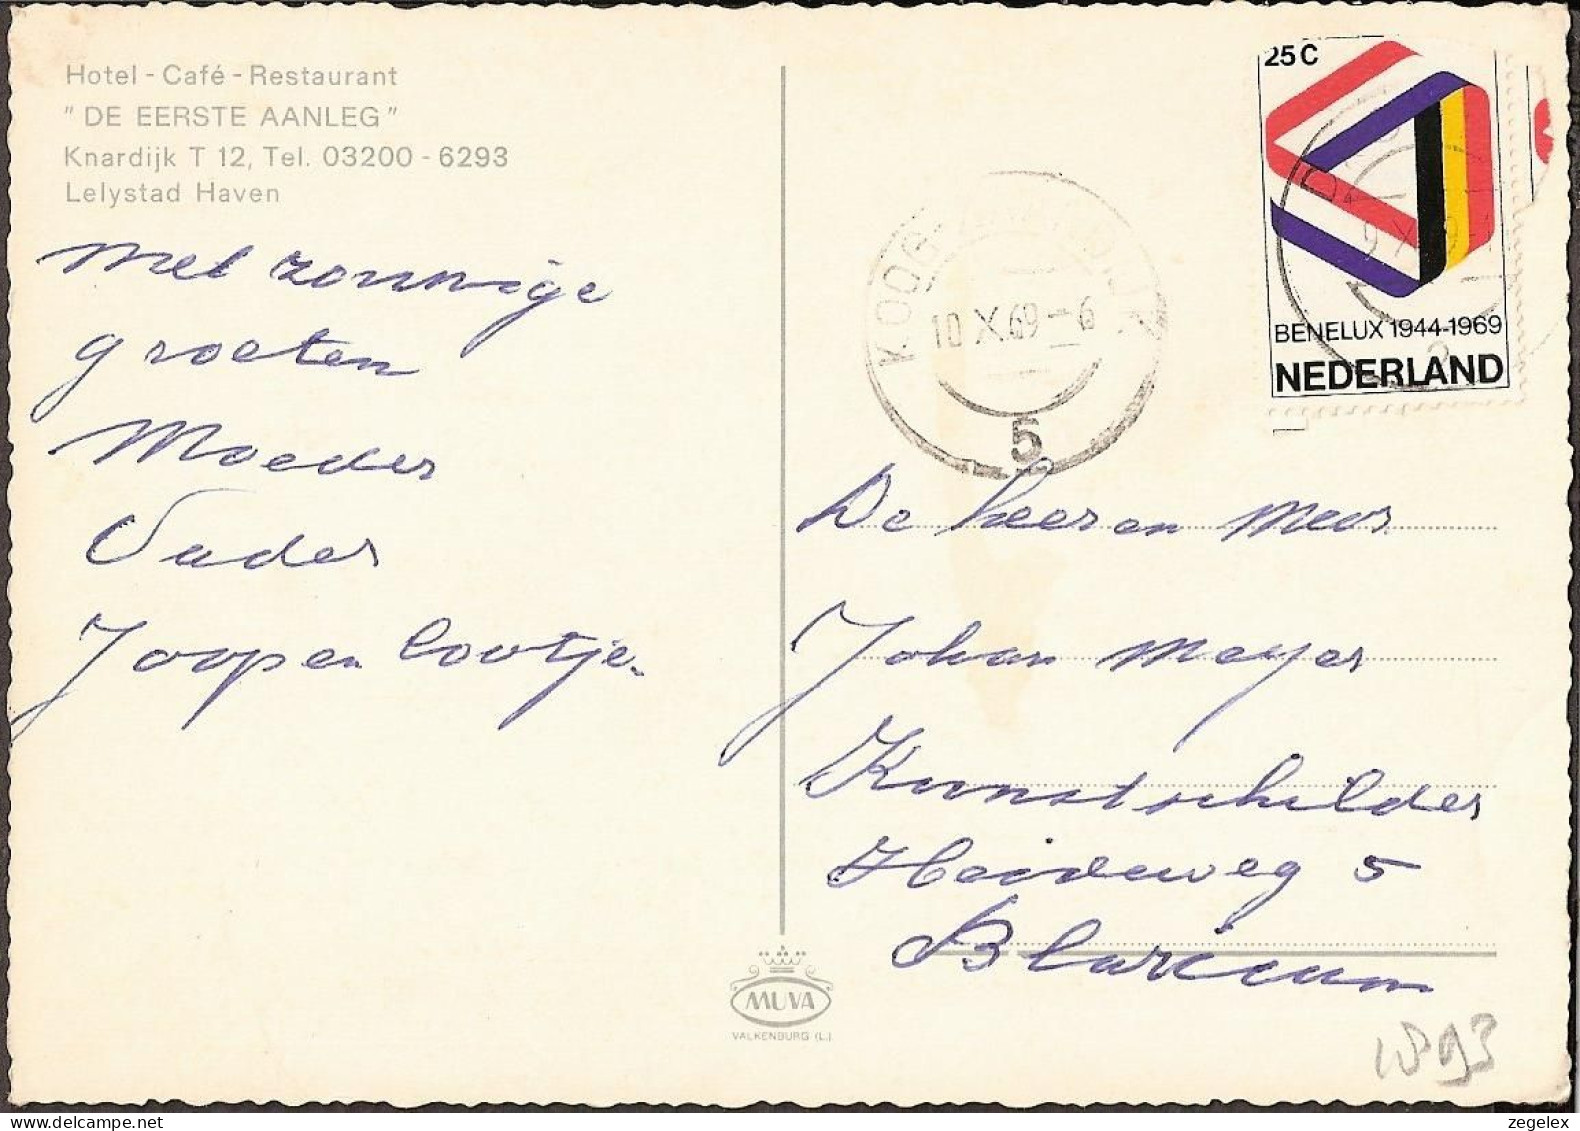 Hotel - Café - Restaurant
" DE EERSTE AANLEG "
Knardijk T 12, Tel. 03200 - 6293
Lelystad Haven
Met zonnige
groeten
Moeder
Vader
Joop en Cootje.
25 C
BENELUX 1944-1969
NEDERLAND
KOOG
10 X 69 - 6
5
De heer en Mevr.
Johan Meyer
Kunstschilder
Heideweg 5
Blaricum
MUVA
VALKENBURG (L.)
zegelex